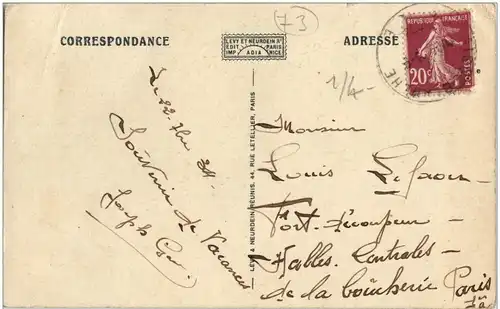 73
CORRESPONDANCE
LEVY ET NEURDEIN Rs
EDIT. PARIS
IMP. ADIA NICE
ADRESSE
REPUBLIQUE FRANÇAISE
20c
POSTES
HE
1/4-
LEVY & NEURDEIN RÉUNIS, 44, RUE LETELLIER, PARIS
Le 22. 7bre 34
Souvenir de Vacances
Joseph
Monsieur
Louis
Fort-découpeur
Halles. Centrales
de la boucherie Paris